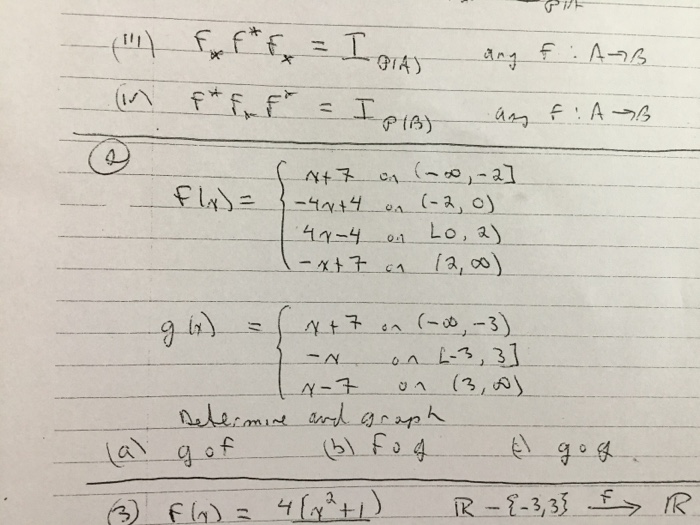 (iii) f⁎ f* f⁎ = I P(A) any f : A→B
(iv) f* f⁎ f* = I P(B) any f : A→B
(2)
f(x) = { x+7 on (-∞,-2]
-4x+4 on (-2, 0)
4x-4 on [0, 2)
-x+7 on (2, ∞)
g(x) = { x+7 on (-∞,-3)
-x on [-3, 3]
x-7 on (3, ∞)
Determine and graph
(a) g∘f (b) f∘g (c) g∘g
(3) f(x) = 4(x²+1) R - {-3,3} f→ R